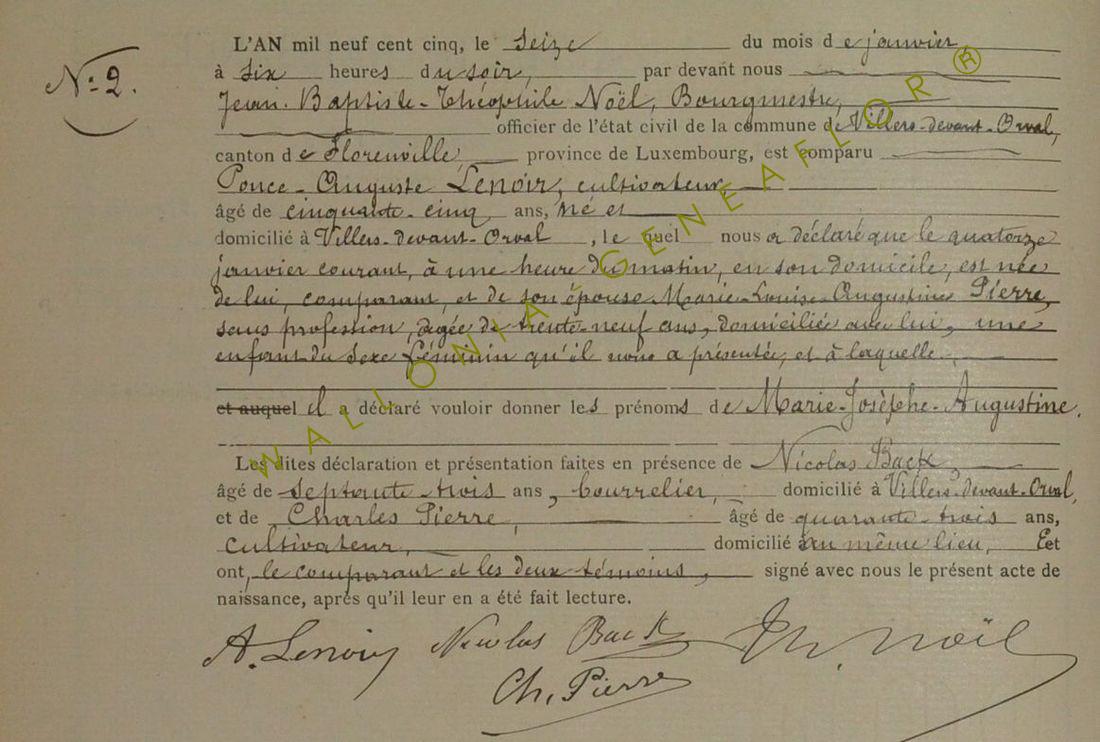 N° 2.
L'AN mil neuf cent cinq, le seize du mois de janvier,
à six heures du soir, par devant nous
Jean-Baptiste-Théophile Noël, Bourgmestre,
officier de l'état civil de la commune de Villers-devant-Orval,
canton de Florenville, province de Luxembourg, est comparu
Ponce-Auguste Lenoir, cultivateur,
âgé de cinquante-cinq ans, né et
domicilié à Villers-devant-Orval, lequel nous a déclaré que le quatorze
janvier courant, à une heure du matin, en son domicile, est née
de lui, comparant, et de son épouse Marie-Louise-Augustine Pierre,
sans profession, âgée de trente-neuf ans, domiciliée avec lui, une
enfant du sexe féminin qu'il nous a présentée, et à laquelle
et auquel il a déclaré vouloir donner les prénoms de Marie-Josèphe-Augustine.
Les dites déclaration et présentation faites en présence de Nicolas Back
âgé de septante-trois ans, bourrelier, domicilié à Villers-devant-Orval,
et de Charles Pierre, âgé de quarante-trois ans,
cultivateur, domicilié au même lieu, Eet
ont, le comparant et les deux témoins, signé avec nous le présent acte de
naissance, après qu'il leur en a été fait lecture.
A. Lenoir Nicolas Back Th. Noël
Ch. Pierre
WALLONIA-GENEAFLOR®